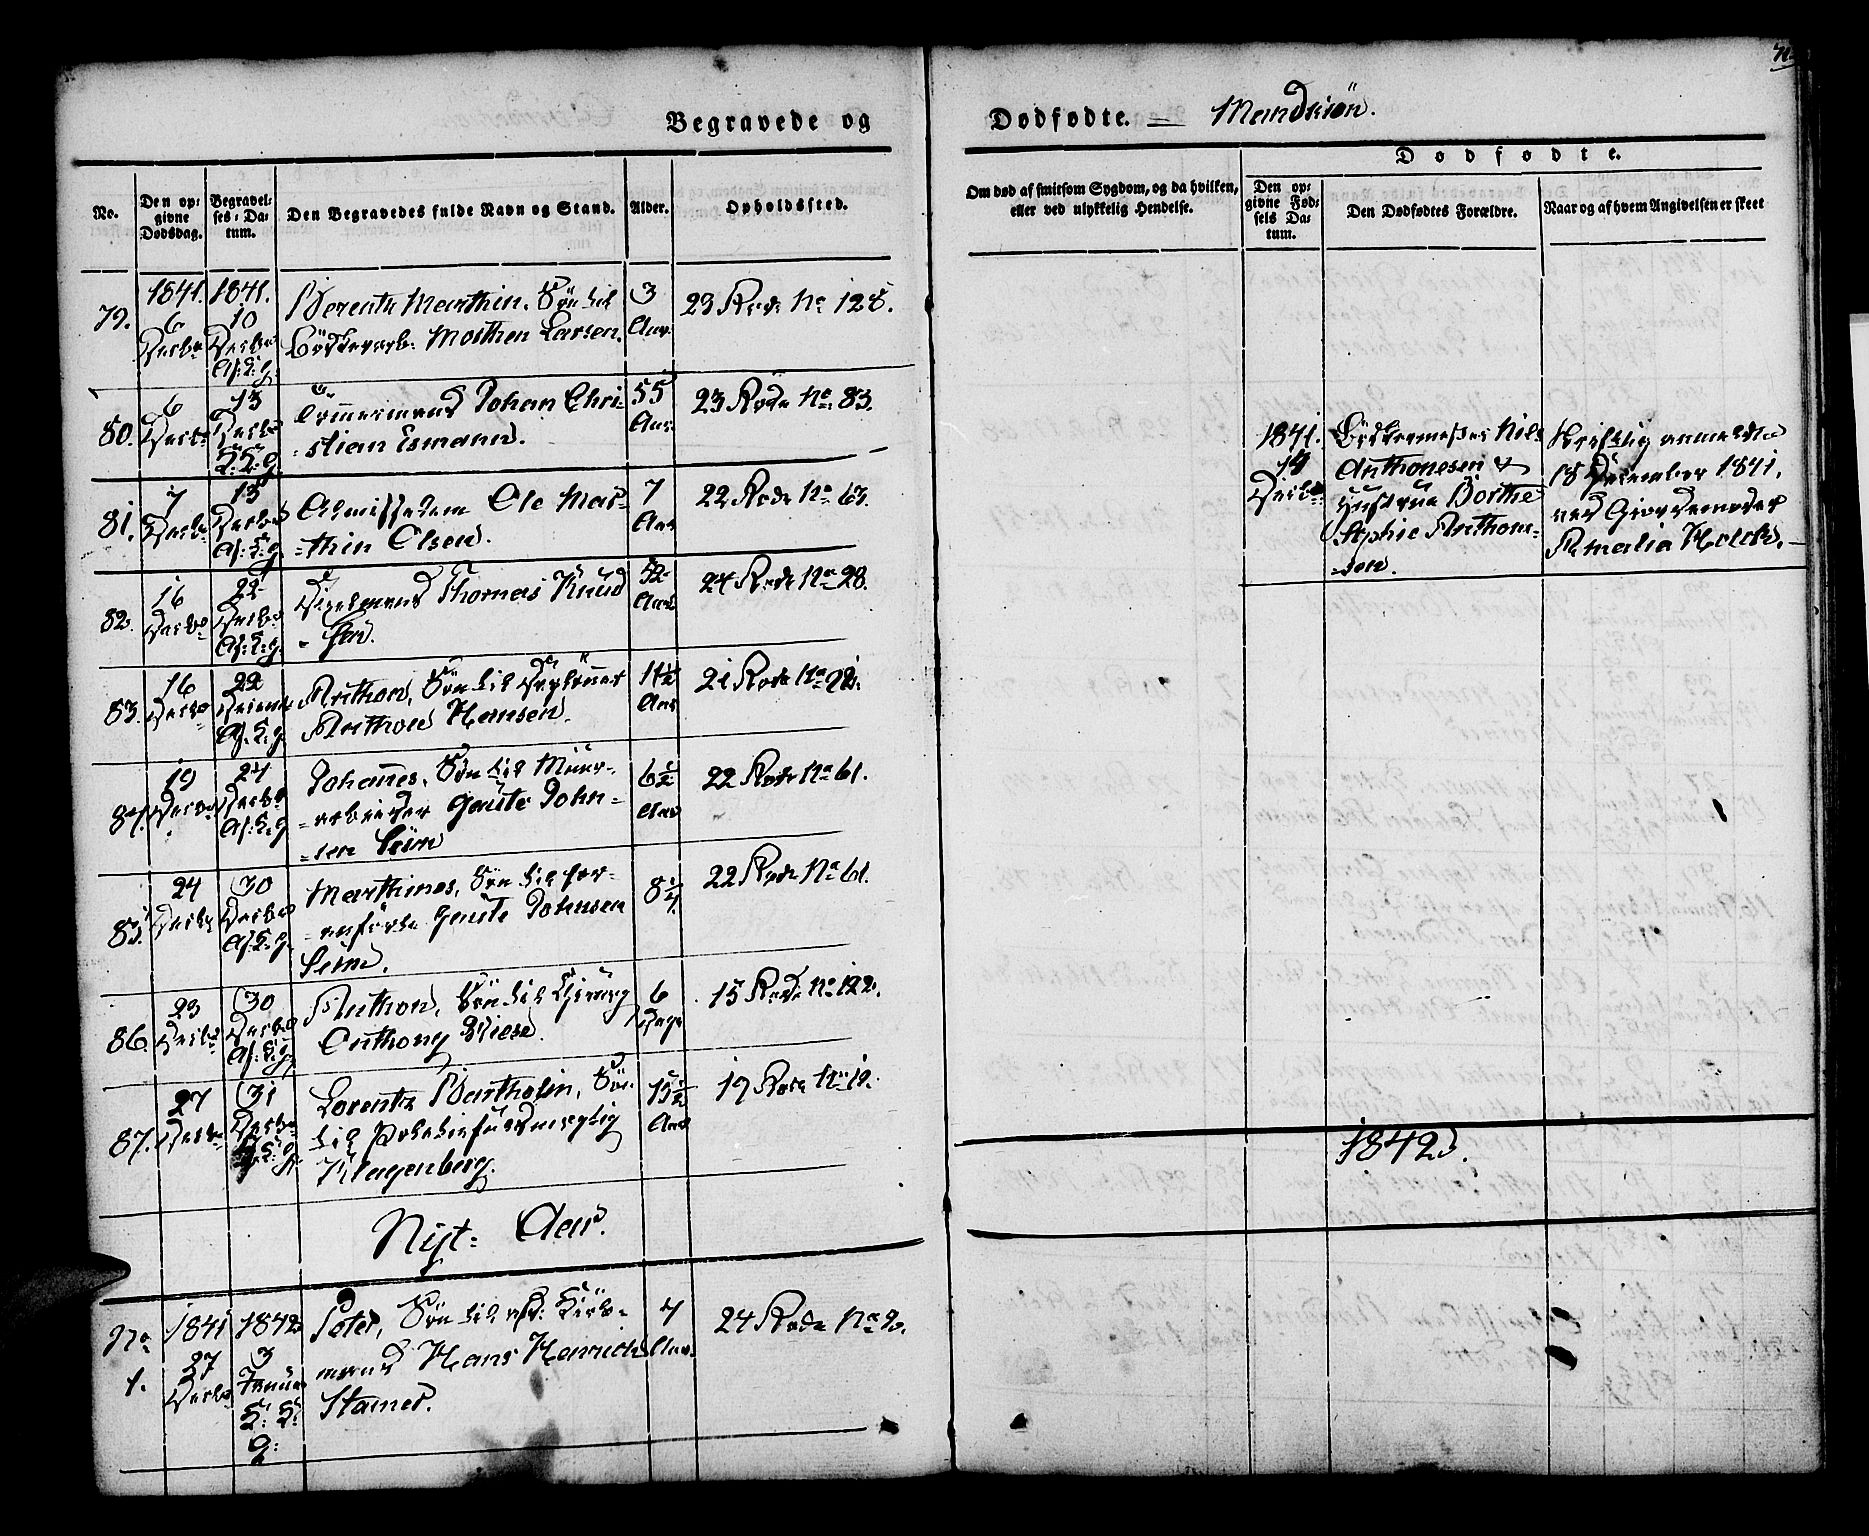 Begravede og
Dødfødte. — Mandkiön.
No.
Den op-
givne
Dødsdag.
Begravel-
ses-Da-
tum.
Den Begravedes fulde Navn og Stand.
Alder.
Opholdssted.
Om død af smitsom Sygdom, og da hvilken,
eller ved ulykkelig Hendelse.
Dødfødte.
Den op-
givne Fød-
sels Da-
tum.
Den Dødfødtes Forældre.
Naar og af hvem Angivelsen er skeet
79.
1841.
6
Decbr
1841.
10
Decbr
Af: K: g.
Berentz Marthin, Søn til
Bødkerarb: Morthen Larsen.
3
Aar
23 Rode No 128.
80.
6
Decbr
13
Decbr
Tömmermand Johan Chri-
-stian Esmann.
55
Aar
23 Rode No 83.
81.
7
Decbr
13
Decbr
Af: K: g.
Almisselem Ole Mar-
-thin Olsen.
7
Aar
22 Rode No 63.
82.
16
Decbr
22
Decbr
Af: K: g.
Thomas Knud
-sen.
52
Aar
24 Rode No 28.
83.
16
Decbr
22
Af: K: g.
Anthon, Søn til
Anthon Hansen.
1½
Aar
21 Rode No 92.
84.
19
Decbr
27
Decbr
Af: K: g
Johannes, Søn til Muur-
-arbeider Gaute John-
-sen Seim
6½
Aar
22 Rode No 61.
85.
24
Decbr
30
Decbr
Af: K: g.
Marthines, Søn til for-
-anførte Gaute Johnsen
Seim.
8¼
22 Rode No 61.
86.
23
Decbr
30
Decbr
Af: K: g.
Anthon, Søn til Chirurg
Anthony Wiese.
6
Dage
15 Rode No 122.
87.
27
Decbr
31
Decbr
Lorentz Bartholin, Søn
til Politiefuldmægtig
Klagenberg.
15½
Aar
19 Rode No 12.
Nyt- Aar.
No
1.
1841
27
Decbr
1842
3
Januar
K: K:
g:
Peter, Søn til
mand Hans Henrich
Stamer.
4
Aar
24 Rode No 2.
1841.
19
Decbr
Bødkermester Nils
Anthonesen &
Hustrue Dorthe
Sophie Anthon-
-sen.
Skriftlig anmeldt
18 December 1841,
ved Giordemoder
Amalia Holck.
1842.